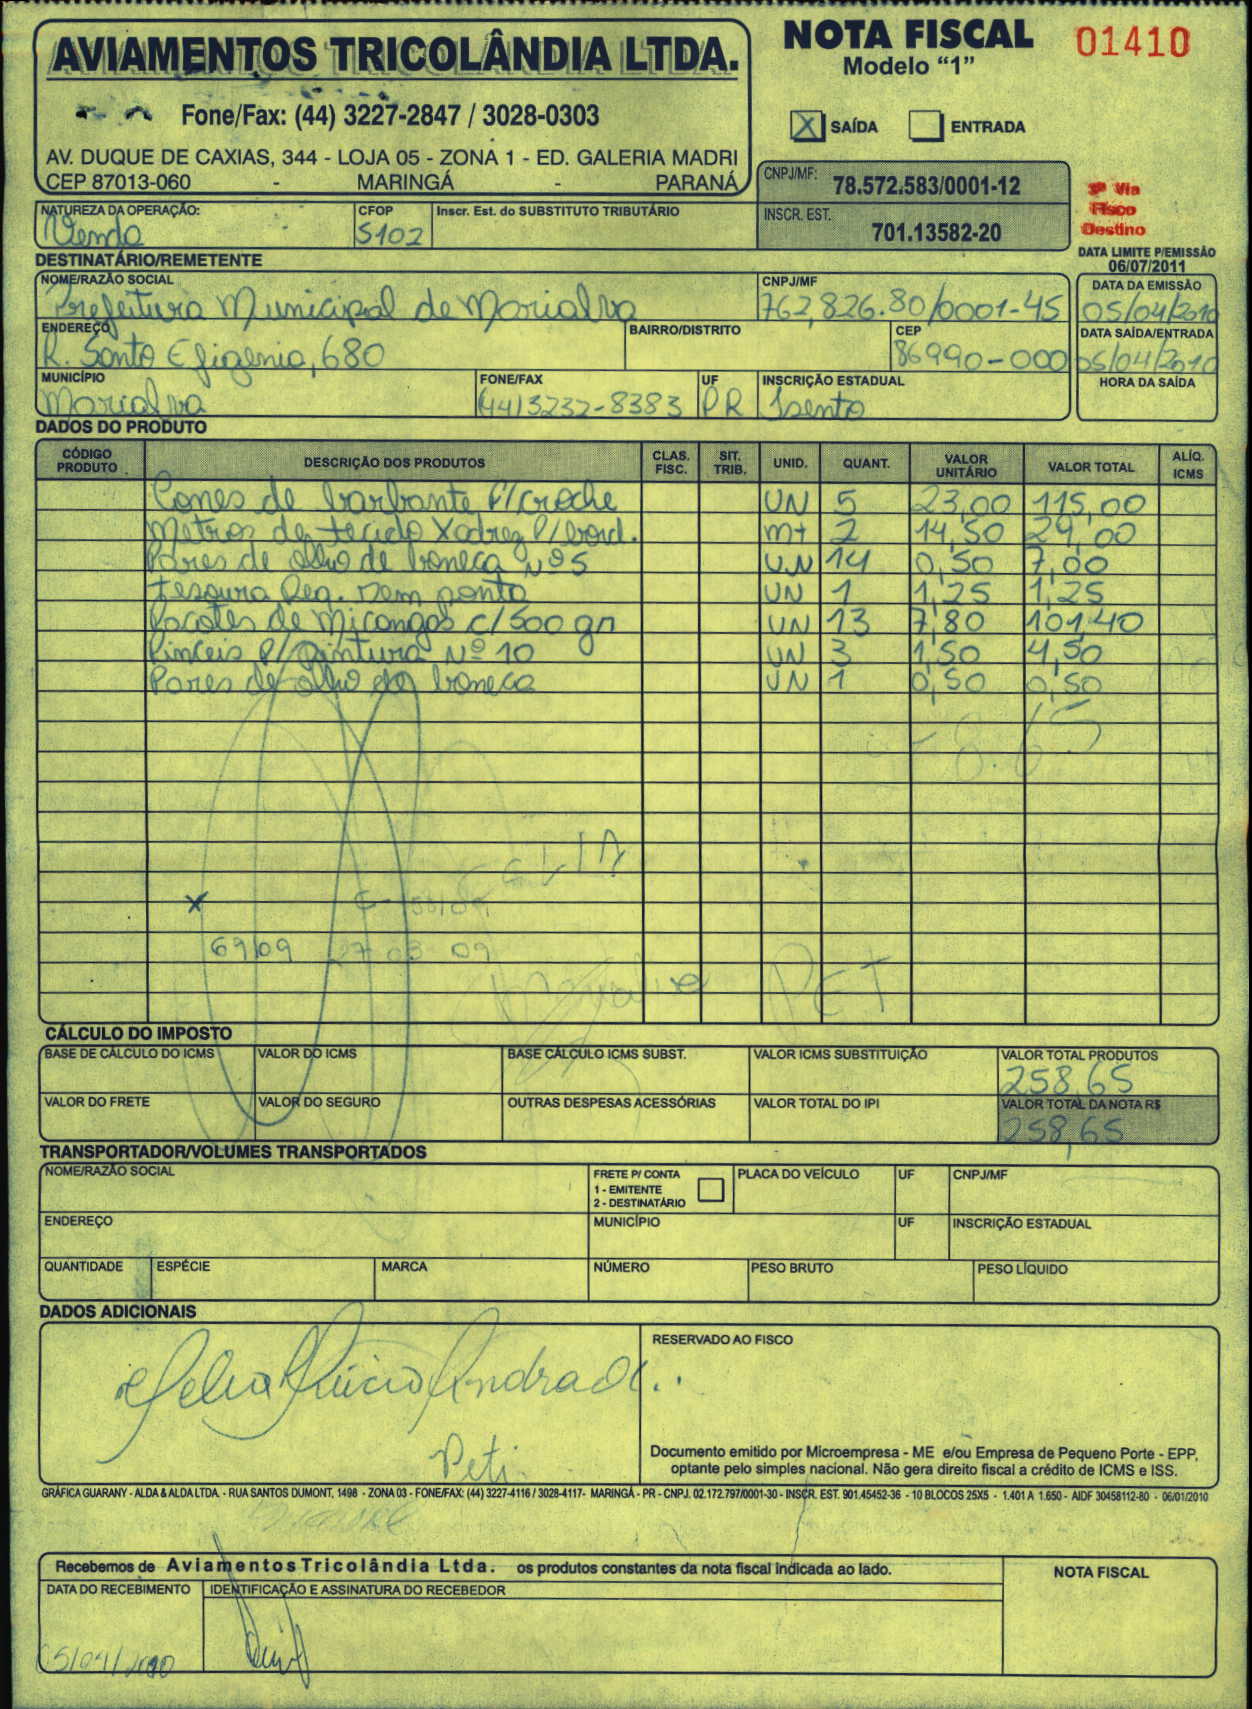 AVIAMENTOS TRICOLÂNDIA LTDA.
Fone/Fax: (44) 3227-2847 / 3028-0303
AV. DUQUE DE CAXIAS, 344 - LOJA 05 - ZONA 1 - ED. GALERIA MADRI
CEP 87013-060 - MARINGÁ - PARANÁ
NOTA FISCAL
Modelo “1”
01410
X SAÍDA ENTRADA
CNPJ/MF: 78.572.583/0001-12
INSCR. EST. 701.13582-20
3ª Via
Fisco
Destino
DATA LIMITE P/EMISSÃO
06/07/2011
NATUREZA DA OPERAÇÃO: CFOP Inscr. Est. do SUBSTITUTO TRIBUTÁRIO
Venda 5102
DESTINATÁRIO/REMETENTE
NOME/RAZÃO SOCIAL CNPJ/MF DATA DA EMISSÃO
Prefeitura Municipal de Marialva 762,826.80/0001-45 05/04/2010
ENDEREÇO BAIRRO/DISTRITO CEP DATA SAÍDA/ENTRADA
R. Santa Efigenia, 680 86990-000 05/04/2010
MUNICÍPIO FONE/FAX UF INSCRIÇÃO ESTADUAL HORA DA SAÍDA
Marialva (44)3232-8383 PR Isento
DADOS DO PRODUTO
CÓDIGO PRODUTO DESCRIÇÃO DOS PRODUTOS CLAS. FISC. SIT. TRIB. UNID. QUANT. VALOR UNITÁRIO VALOR TOTAL ALÍQ. ICMS
Cones de barbante P/ croche UN 5 23,00 115,00
Metros de tecido Xadrez P/ bord. mt 2 14,50 29,00
Pares de olho de boneca Nº 5 UN 14 0,50 7,00
Tesoura Peq. sem ponta UN 1 1,25 1,25
Pacotes de Miçangas c/500 gr UN 13 7,80 101,40
Pinceis P/ Pintura Nº 10 UN 3 1,50 4,50
Pares de olho de boneca UN 1 0,50 0,50
8.65
CELIA
X
69/09 27 03 09
Marialva PET
CÁLCULO DO IMPOSTO
BASE DE CÁLCULO DO ICMS VALOR DO ICMS BASE CÁLCULO ICMS SUBST. VALOR ICMS SUBSTITUIÇÃO VALOR TOTAL PRODUTOS
258,65
VALOR DO FRETE VALOR DO SEGURO OUTRAS DESPESAS ACESSÓRIAS VALOR TOTAL DO IPI VALOR TOTAL DA NOTA R$
258,65
TRANSPORTADOR/VOLUMES TRANSPORTADOS
NOME/RAZÃO SOCIAL FRETE P/ CONTA PLACA DO VEÍCULO UF CNPJ/MF
1 - EMITENTE
2 - DESTINATÁRIO
ENDEREÇO MUNICÍPIO UF INSCRIÇÃO ESTADUAL
QUANTIDADE ESPÉCIE MARCA NÚMERO PESO BRUTO PESO LÍQUIDO
DADOS ADICIONAIS
RESERVADO AO FISCO
Celia Lúcia Andrade..
Peti
Documento emitido por Microempresa - ME e/ou Empresa de Pequeno Porte - EPP,
optante pelo simples nacional. Não gera direito fiscal a crédito de ICMS e ISS.
GRÁFICA GUARANY - ALDA & ALDA LTDA. - RUA SANTOS DUMONT, 1498 - ZONA 03 - FONE/FAX: (44) 3227-4116 / 3028-4117- MARINGÁ - PR - CNPJ. 02.172.797/0001-30 - INSCR. EST. 901.45452-36 - 10 BLOCOS 25X5 - 1.401 A 1.650 - AIDF 30458112-80 - 06/01/2010
Recebemos de Aviamentos Tricolândia Ltda. os produtos constantes da nota fiscal indicada ao lado.
NOTA FISCAL
DATA DO RECEBIMENTO IDENTIFICAÇÃO E ASSINATURA DO RECEBEDOR
05/04/2010